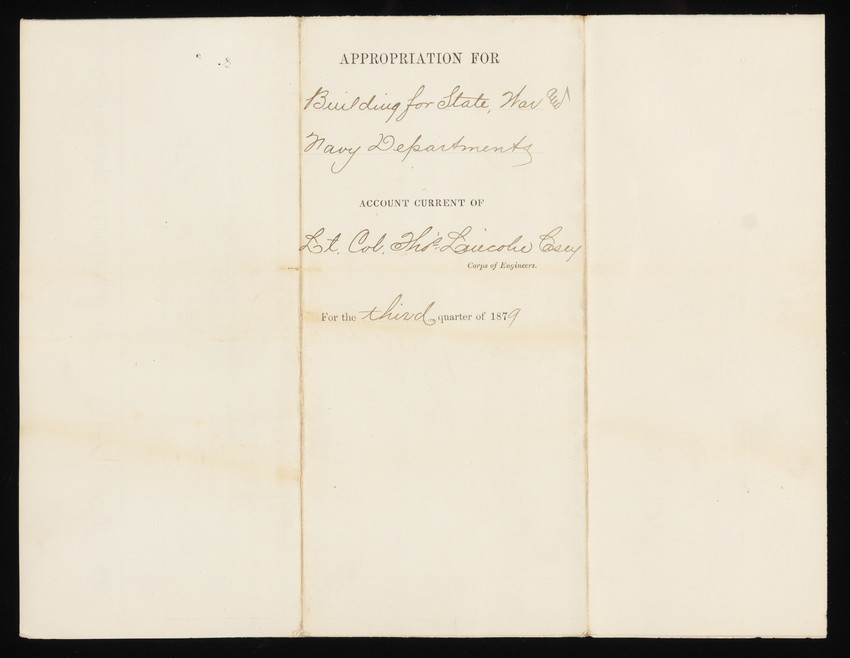 APPROPRIATION FOR
Building for State, War and
Navy Departments
ACCOUNT CURRENT OF
Lt. Col. Thos. Lincoln Casey
Corps of Engineers.
For the third quarter of 1879